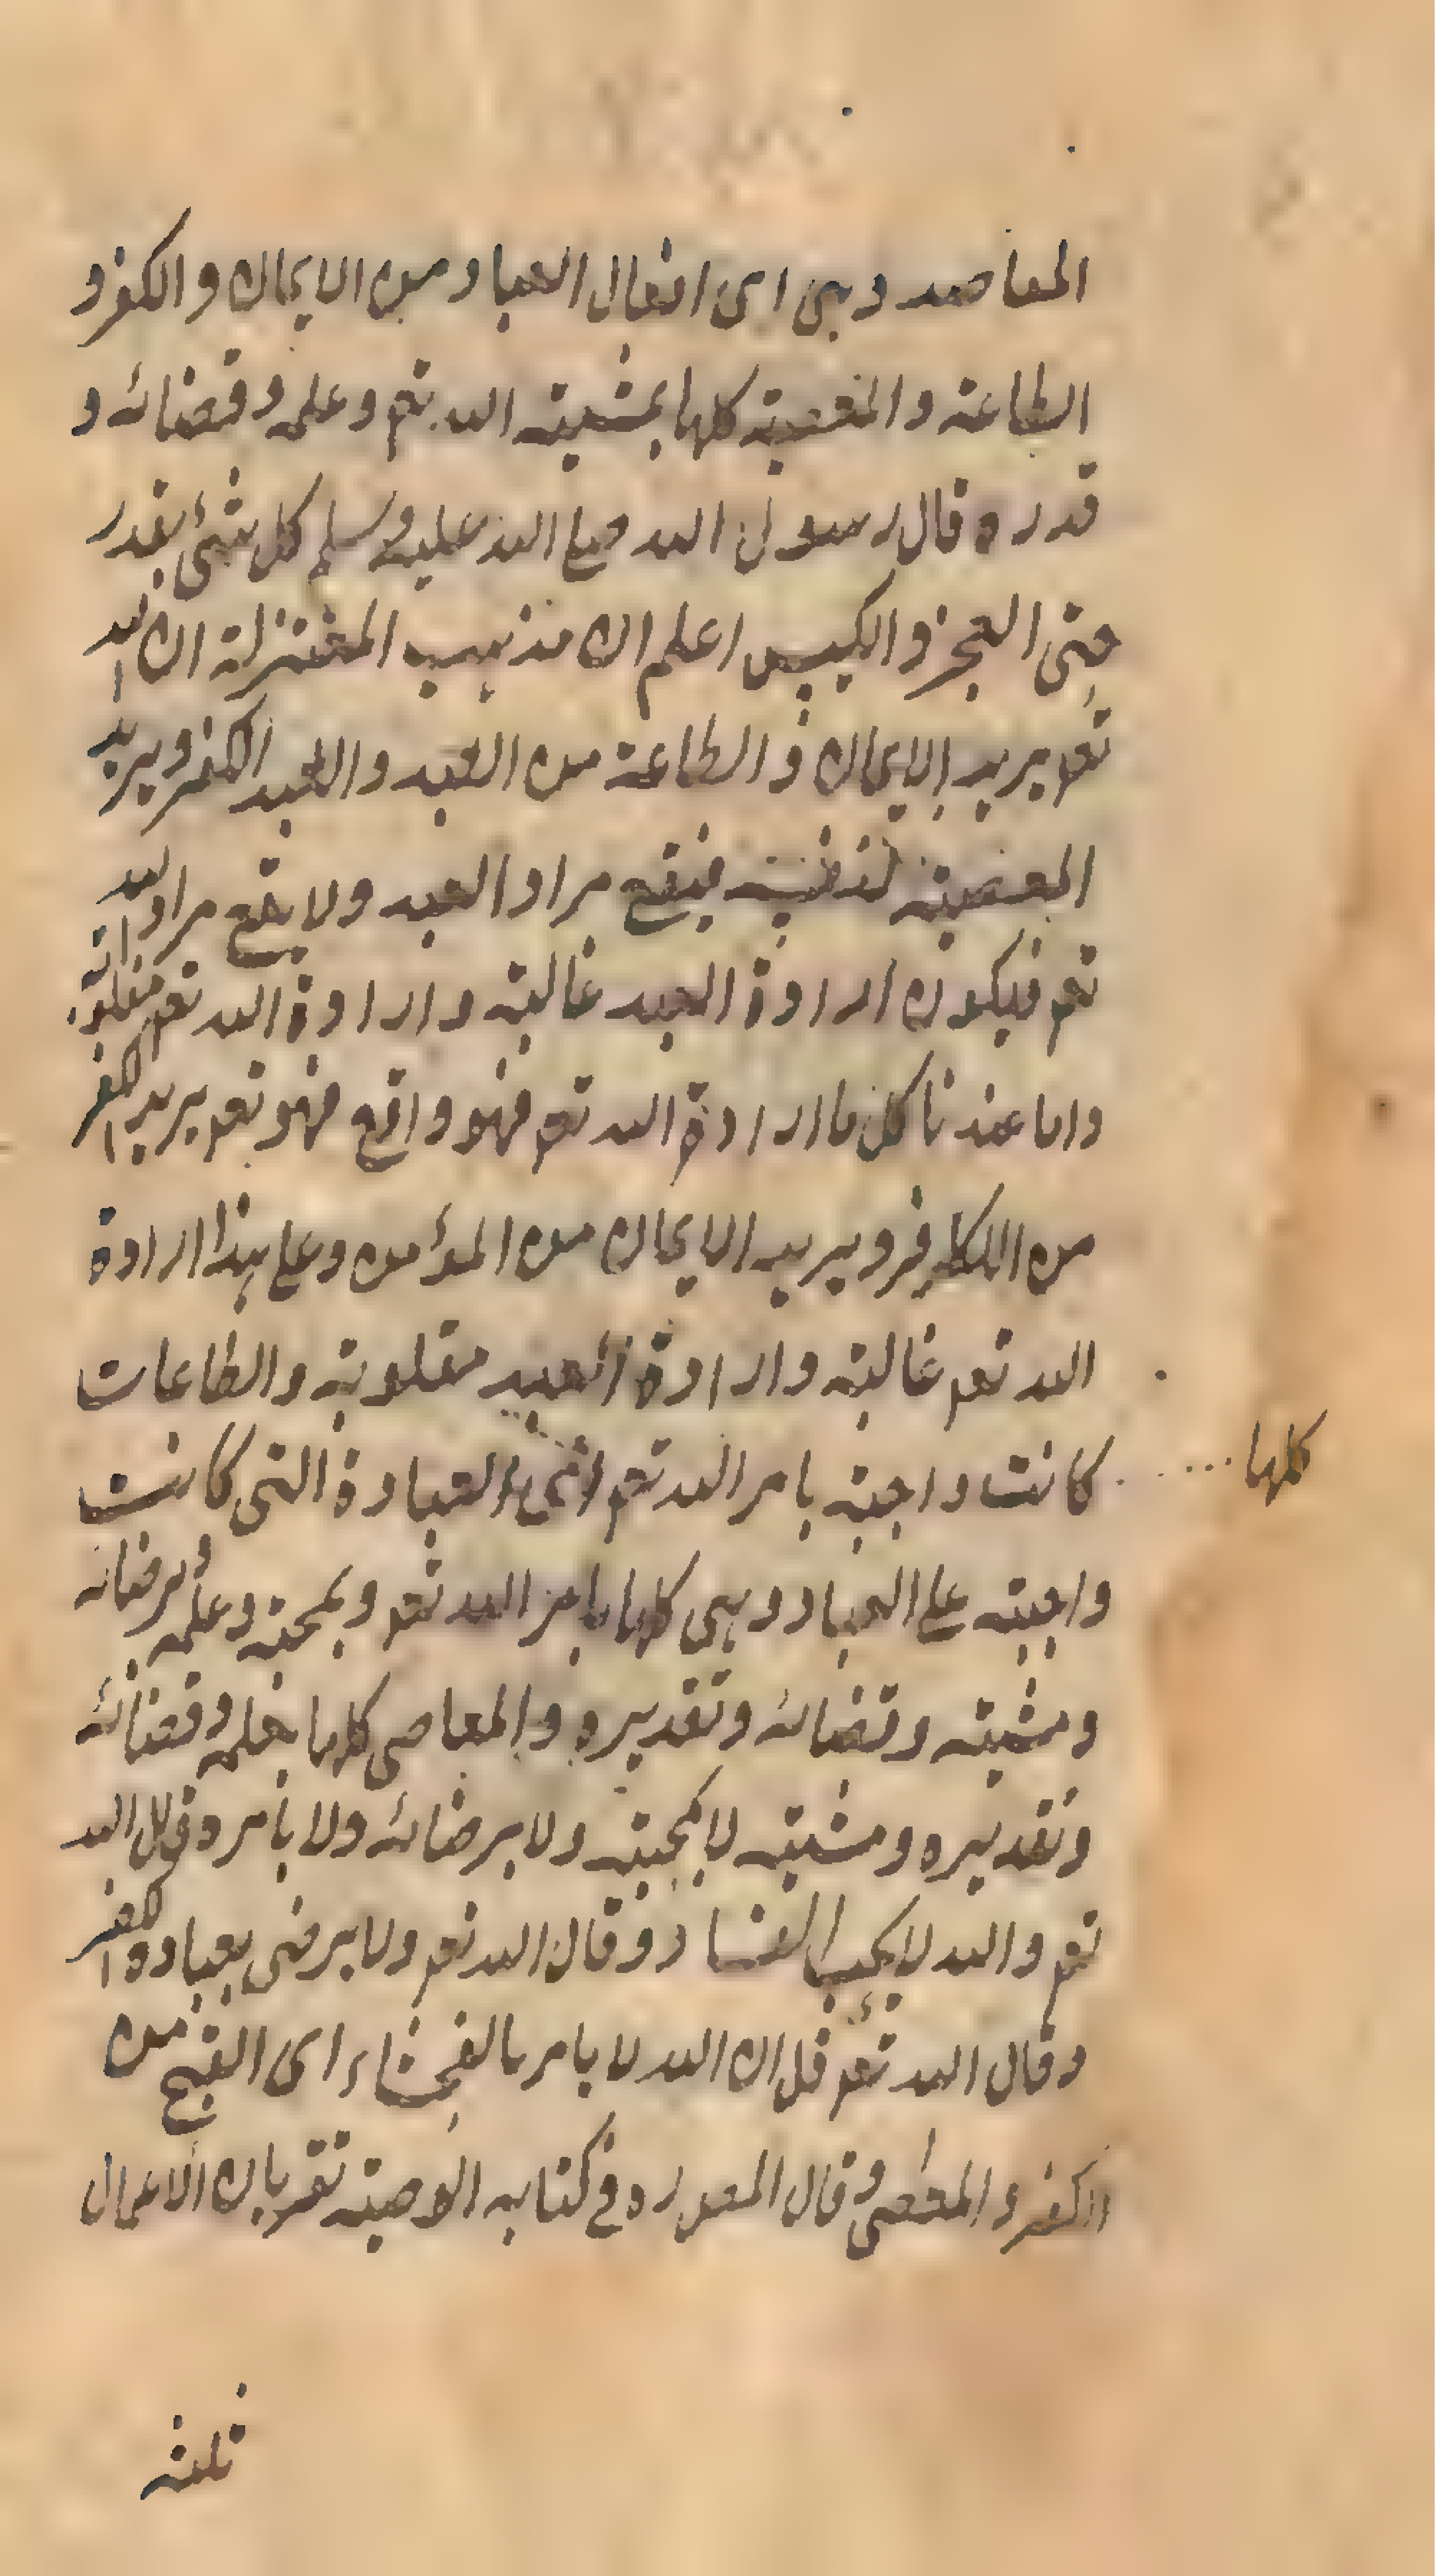 المقاصد وهى اى افعال العباد من الايمان والكفر و
الطاعة والمعصية كلها بمشيته الله تعم وعلمه وقضائه و
قدره قال رسول الله صلى الله عليه وسلم كل شئ بقدر
حتى العجز والكيس اعلم ان مذهب المعتزلة ان الله
تعم يريد الايمان والطاعة من العبد والعبد الكفر ويريد
المعصية لنفسه فيقع مراد العبد ولا يقع مراد الله
تعم فيكون ارادة العبد غالبة وارادة الله تعم مغلوبة
واما عندنا كل ما ارادة الله تعم فهو واقع فهو تعم يريد الكفر
من الكافر ويريد الايمان من المؤمن وعلى هذا ارادة
الله تعم غالبة وارادة العبد مغلوبة والطاعات
كلها
كانت واجبة بامر الله تعم العبادة التى كانت
واجبة على العباد وهى كلها بامر الله تعم وبمحبته وعلمه وبرضائه
ومشيته وقضائه وتقديره والمعاصى كلها بعلمه وقضائه
وتقديره ومشيته لا بمحبته ولا برضائه ولا بامره قال الله
تعم والله لا يحب الفساد وقال الله تعم ولا يرضى بعباده الكفر
وقال الله تعم قل ان الله لا يامر بالفحشاء اى القبح من
الكفر والمعصى وقال المص ره فى كتابه الوصية نقر بان الاعمال
ثلثة